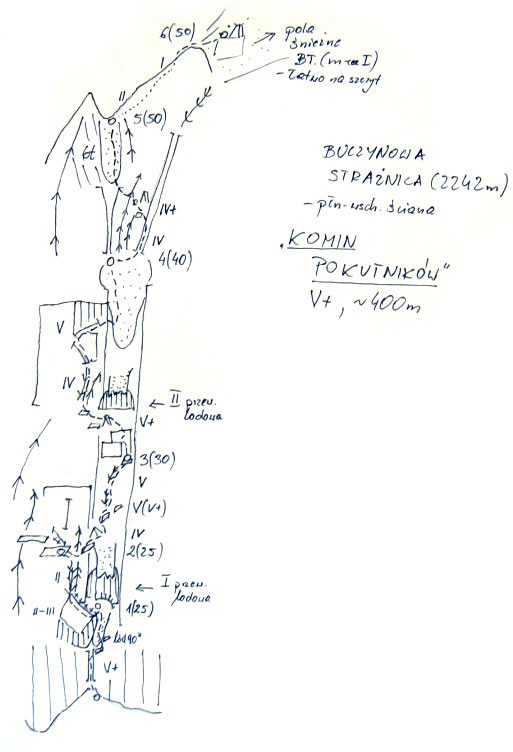 6(50)
pola
śnieżne
BT. (m-ca I)
- łatwo na szczyt
I
II
5(50)
6t
BUCZYNOWA
STRAŻNICA (2242m)
- płn-wsch. ściana
„KOMIN
POKUTNIKÓW"
V+, ~400m
IV+
IV
4(40)
V
IV
← II przew.
lodowa
V+
3(30)
V
V(V+)
I
IV
2(25)
II
← I przew.
lodowa
1(25)
II-III
lód 90°
V+